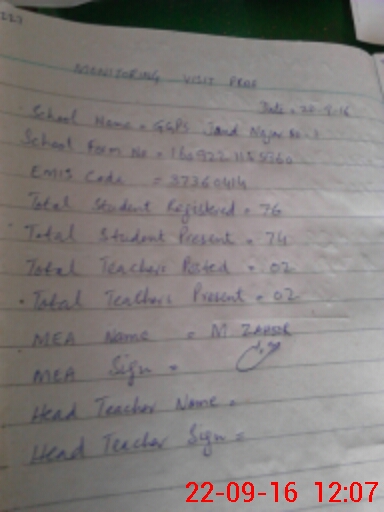 MONITORING VISIT PROF
Date = 22-9-16
School Name = GGPS Jand Najar No-1
School Form No =
EMIS Code = 37360414
Total Student Registered = 76
Total Student Present = 74
Total Teachers Posted = 02
Total Teachers Present = 02
MEA Name = M. ZAHOOR
MEA Sign =
Head Teacher Name =
Head Teacher Sign =
22-09-16 12:07